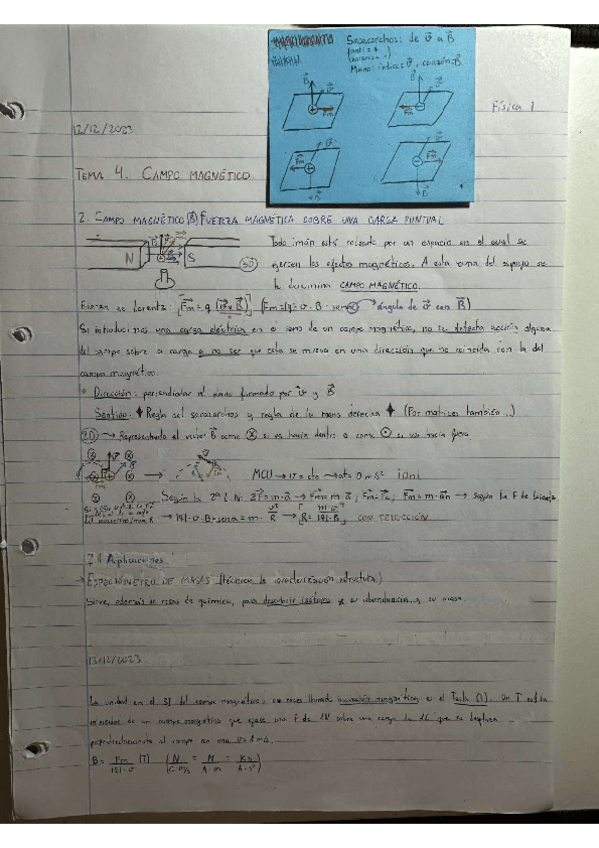 Sacacorchos: de v⃗ a B⃗
Mano: índice = v⃗, corazón = B⃗
Física 1
12/12/2023
TEMA 4. CAMPO MAGNÉTICO
2. CAMPO MAGNÉTICO (B⃗) FUERZA MAGNÉTICA SOBRE UNA CARGA PUNTUAL
N S
3D
Todo imán está rodeado por un espacio en el cual se
ejercen los efectos magnéticos. A esta zona del espacio se
le denomina CAMPO MAGNÉTICO.
Fuerza de Lorentz: F⃗m = q (v⃗ × B⃗) (Fm = |q| · v · B · senα → ángulo de v⃗ con B⃗)
Si introducimos una carga eléctrica en el seno de un campo magnético, no se detecta acción alguna
del campo sobre la carga a no ser que esta se mueva en una dirección que no coincida con la del
campo magnético.
Dirección: perpendicular al plano formado por v⃗ y B⃗
Sentido: Regla del sacacorchos y regla de la mano derecha (Por matrices también...)
2D → Representando el vector B⃗ como ⊗ si va hacia dentro o como ⊙ si va hacia fuera
MCU → v = cte → at = 0 m/s²
Según la 2ª L.N. ΣF⃗ = m·a⃗ → F⃗m = m·a⃗, Fm = m·an → según la F de Lorentz
→ |q|·v·B·senα = m· v²/R → R = m·v/|q|·B
2.1 Aplicaciones
ESPECTRÓMETRO DE MASAS (técnica de caracterización estructural)
Sirve, además de cosas de química, para descubrir isótopos y su abundancia y su masa.
13/12/2023
La unidad en el SI del campo magnético, a veces llamado inducción magnética es el Tesla (T). Un T es la
inducción de un campo magnético que ejerce una F de 1N sobre una carga de 1C que se desplaza
perpendicularmente al campo con una v = 1 m/s.
B = Fm/|q|·v (T) (N/C·m/s = N/A·m = Kg/A·s²)